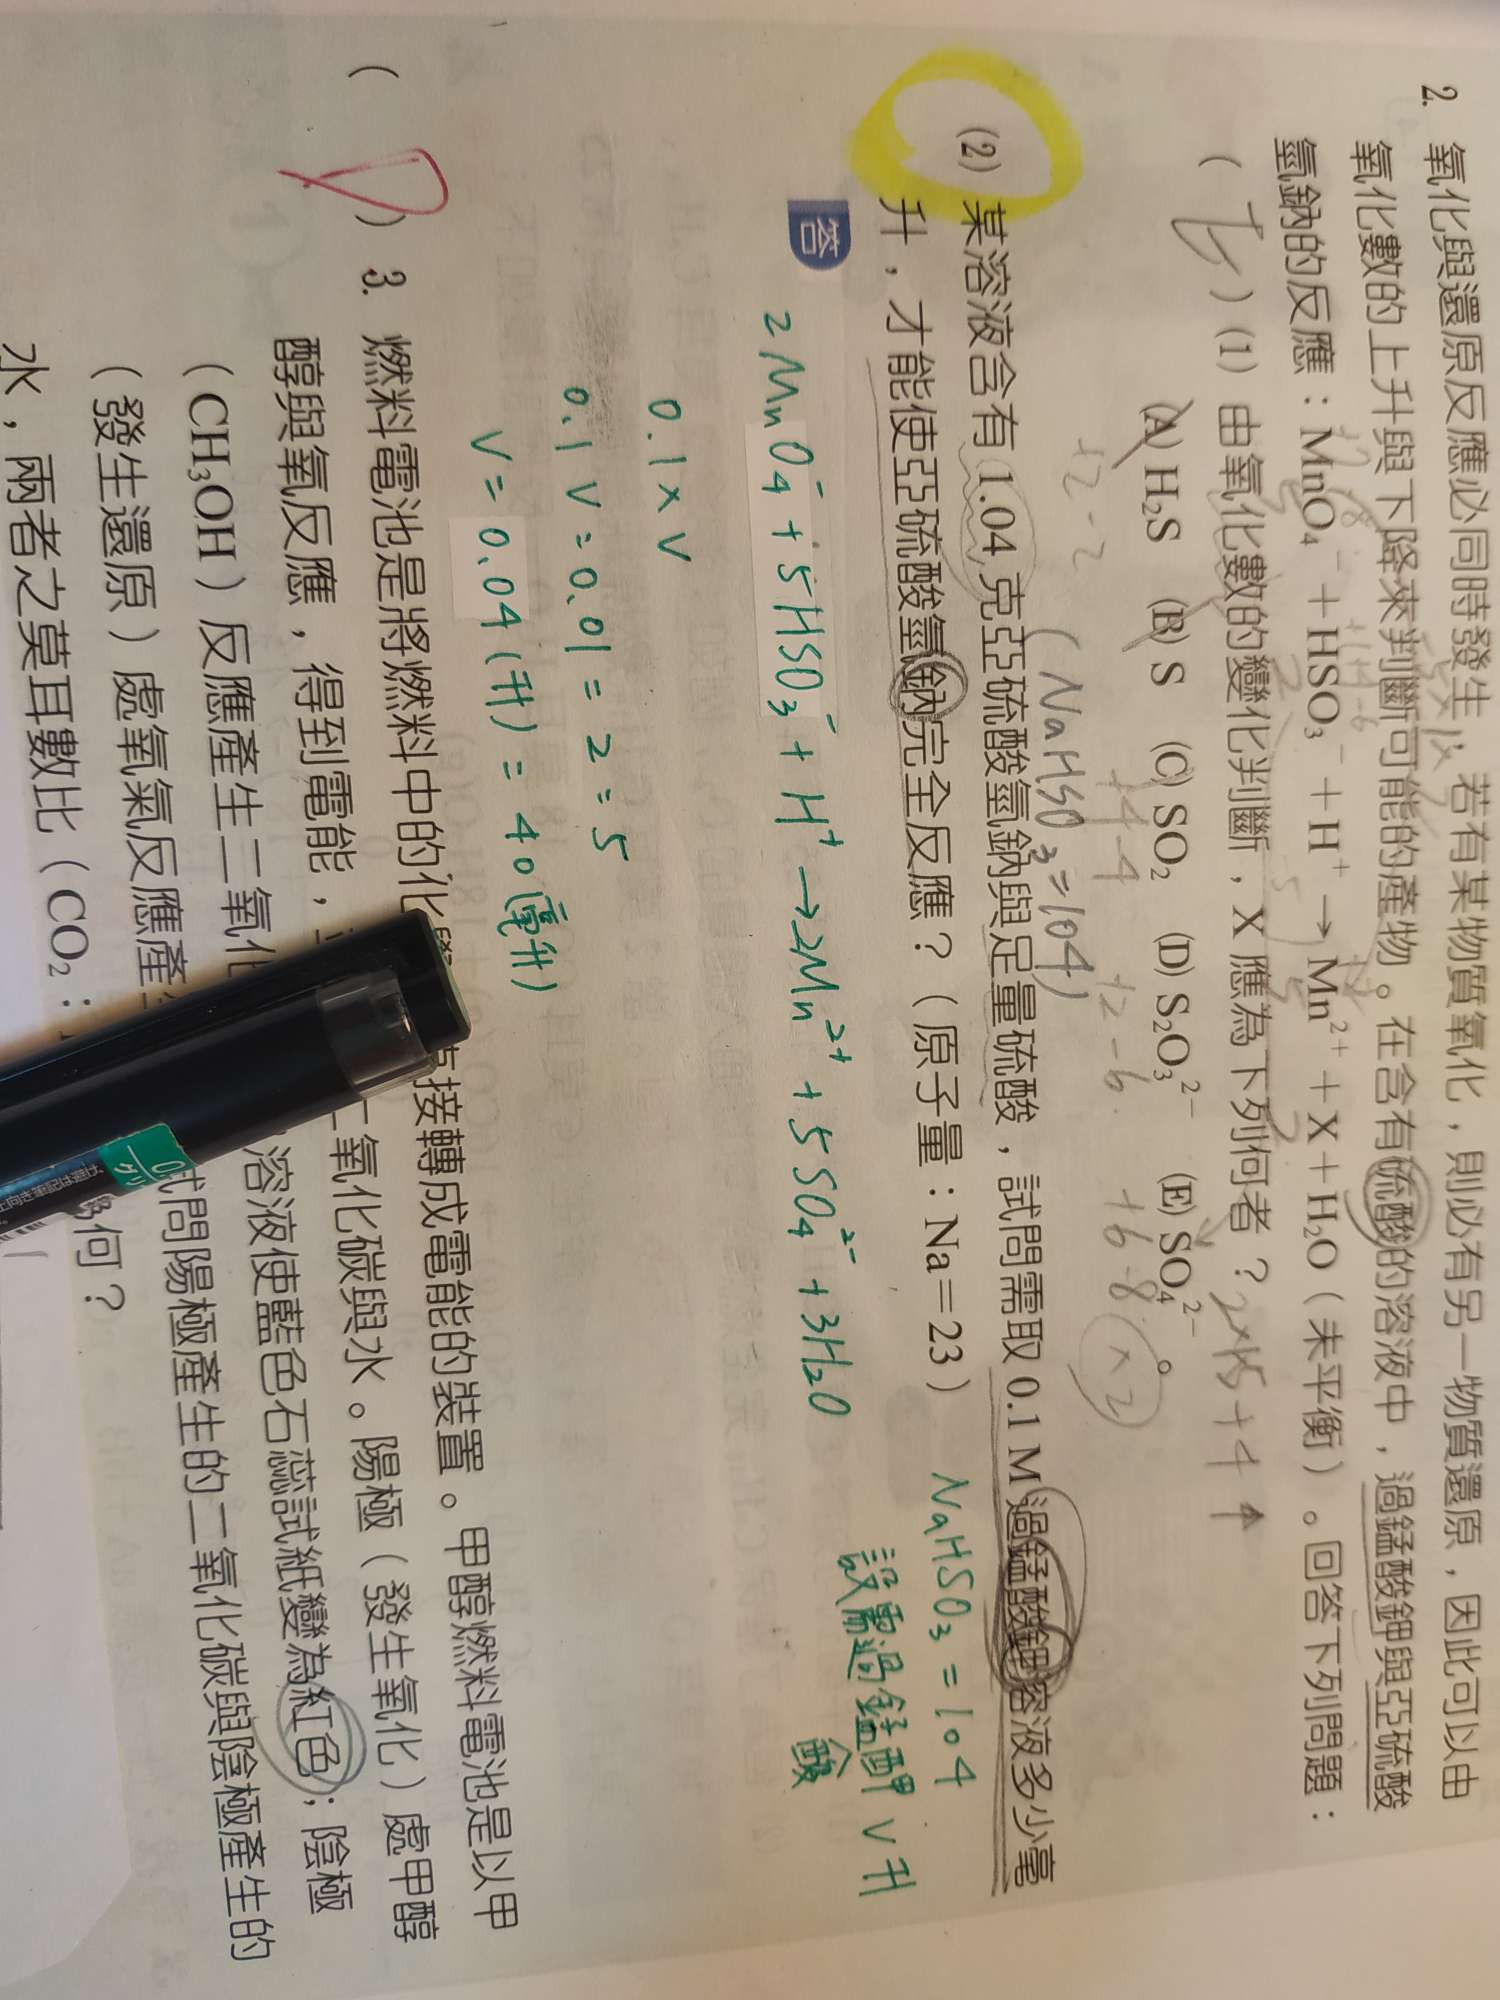 2. 氧化與還原反應必同時發生，若有某物質氧化，則必有另一物質還原，因此可以由
氧化數的上升與下降來判斷可能的產物。在含有硫酸的溶液中，過錳酸鉀與亞硫酸
氫鈉的反應：MnO₄⁻ + HSO₃⁻ + H⁺ → Mn²⁺ + X + H₂O（未平衡）。回答下列問題：
( E ) (1) 由氧化數的變化判斷，X 應為下列何者？ 2×15+4
(A) H₂S (B) S (C) SO₂ (D) S₂O₃²⁻ (E) SO₄²⁻。
+2-2 +4-4 +2-6 +6-8 (×2)
(NaHSO₃=104)
(2) 某溶液含有 1.04 克亞硫酸氫鈉與足量硫酸，試問需取 0.1 M 過錳酸鉀溶液多少毫
升，才能使亞硫酸氫鈉完全反應？（原子量：Na＝23）
NaHSO₃ = 104
設需過錳酸鉀 V升
答
2MnO₄⁻ + 5HSO₃⁻ + H⁺ → 2Mn²⁺ + 5SO₄²⁻ + 3H₂O
0.1 × V
0.1 V = 0.01 = 2 = 5
V = 0.04 (升) = 40 (毫升)
( D ) 3. 燃料電池是將燃料中的化 接轉成電能的裝置。甲醇燃料電池是以甲
醇與氧反應，得到電能， 二氧化碳與水。陽極（發生氧化）處甲醇
（CH₃OH）反應產生二氧化 溶液使藍色石蕊試紙變為紅色；陰極
（發生還原）處氧氣反應產 試問陽極產生的二氧化碳與陰極產生的
水，兩者之莫耳數比（CO₂： 為何？